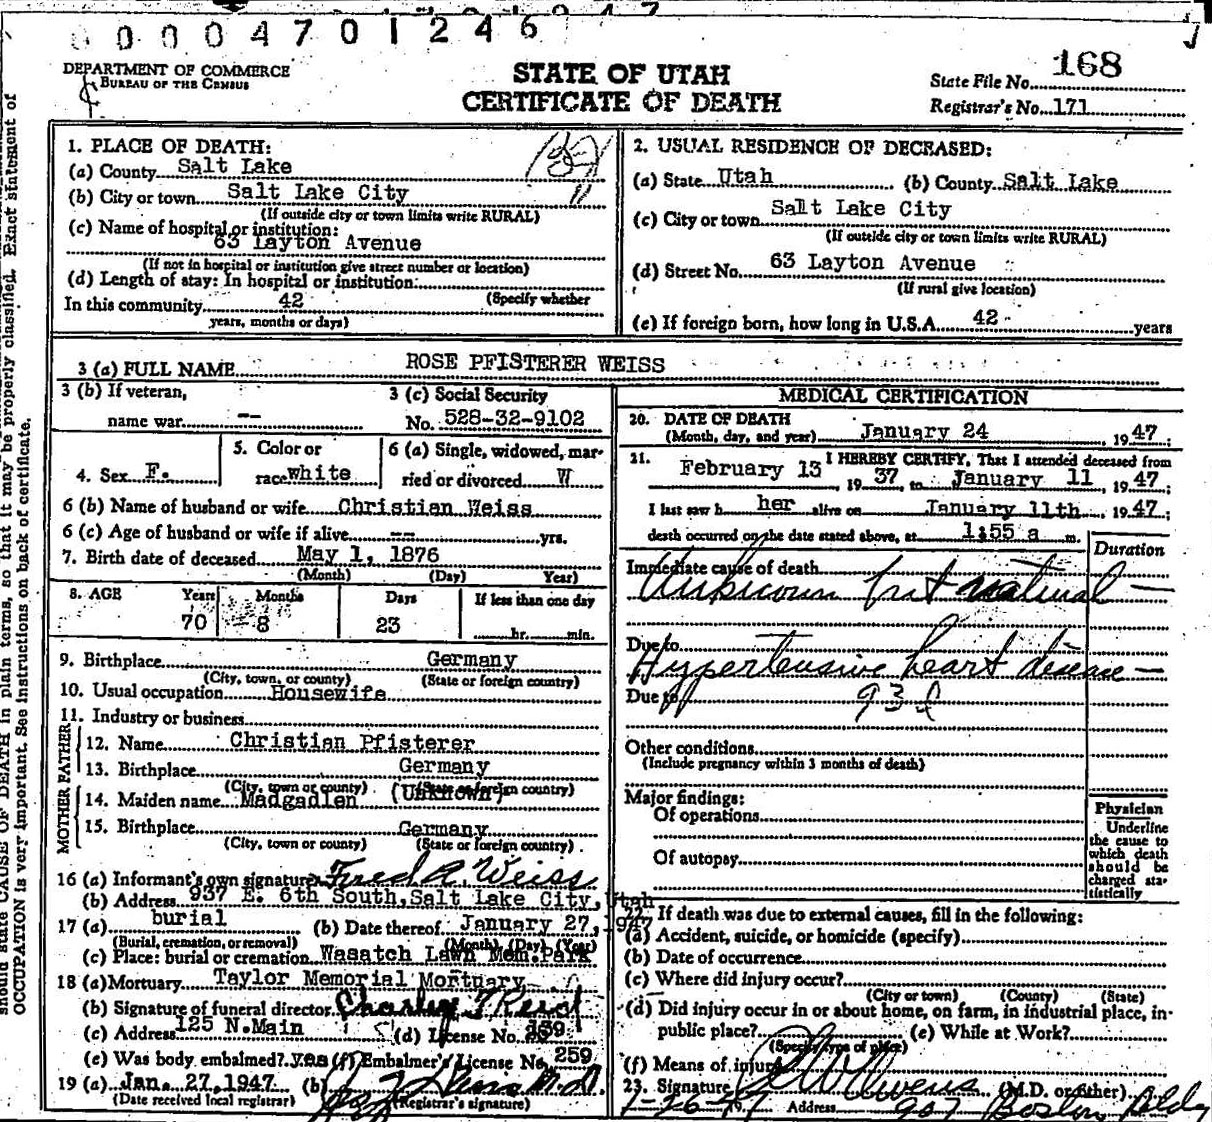 0 0 0 0 4 7 0 1 2 4 6
DEPARTMENT OF COMMERCE
BUREAU OF THE CENSUS
STATE OF UTAH
CERTIFICATE OF DEATH
State File No. 168
Registrar's No. 171
1. PLACE OF DEATH:
(a) County Salt Lake
(b) City or town Salt Lake City
(If outside city or town limits write RURAL)
(c) Name of hospital or institution:
63 Layton Avenue
(If not in hospital or institution give street number or location)
(d) Length of stay: In hospital or institution:
(Specify whether
In this community 42
years, months or days)
2. USUAL RESIDENCE OF DECEASED:
(a) State Utah (b) County Salt Lake
(c) City or town Salt Lake City
(If outside city or town limits write RURAL)
(d) Street No. 63 Layton Avenue
(If rural give location)
(e) If foreign born, how long in U.S.A. 42 years
3 (a) FULL NAME ROSE PFISTERER WEISS
3 (b) If veteran,
name war --
3 (c) Social Security
No. 528-32-9102
4. Sex F.
5. Color or
race white
6 (a) Single, widowed, mar-
ried or divorced W
6 (b) Name of husband or wife Christian Weiss
6 (c) Age of husband or wife if alive -- yrs.
7. Birth date of deceased May 1, 1876
(Month) (Day) Year)
8. AGE Years Months Days If less than one day
70 8 23 hr. min.
9. Birthplace Germany
(City, town, or county) (State or foreign country)
10. Usual occupation Housewife
11. Industry or business
FATHER
12. Name Christian Pfisterer
13. Birthplace Germany
(City, town or county) (State or foreign country)
MOTHER
14. Maiden name Madgadlen (Unknown)
15. Birthplace Germany
(City, town or county) (State or foreign country)
16 (a) Informant's own signature Fred A. Weiss
(b) Address 937 E. 6th South, Salt Lake City, Utah
17 (a) burial (b) Date thereof January 27, 1947
(Burial, cremation, or removal) (Month) (Day) (Year)
(c) Place: burial or cremation Wasatch Lawn Mem. Park
18 (a) Mortuary Taylor Memorial Mortuary
(b) Signature of funeral director Charley T Reid
(c) Address 125 N. Main (d) License No.
(e) Was body embalmed? yes (f) Embalmer's License No. 259
19 (a) Jan. 27, 1947 (b)
(Date received local registrar) (Registrar's signature)
MEDICAL CERTIFICATION
20. DATE OF DEATH
(Month, day, and year) January 24, 1947;
21. I HEREBY CERTIFY, That I attended deceased from
February 13, 1937, to January 11, 1947;
I last saw h her alive on January 11th, 1947;
death occurred on the date stated above, at 1:55 a m.
Duration
Immediate cause of death
Unknown but natural —
Due to
Hypertensive heart disease —
Due to
93d
Other conditions
(Include pregnancy within 3 months of death)
Major findings:
Of operations
Of autopsy
Physician
Underline
the cause to
which death
should be
charged sta-
tistically
22. If death was due to external causes, fill in the following:
(a) Accident, suicide, or homicide (specify)
(b) Date of occurrence
(c) Where did injury occur?
(City or town) (County) (State)
(d) Did injury occur in or about home, on farm, in industrial place, in
public place? (e) While at Work?
(Specify type of place)
(f) Means of injury
23. Signature Owens (M.D. or other)
1-26-47 Address 907 Boston Bldg
should state CAUSE OF DEATH in plain terms, so that it may be properly classified. Exact statement of
OCCUPATION is very important. See instructions on back of certificate.